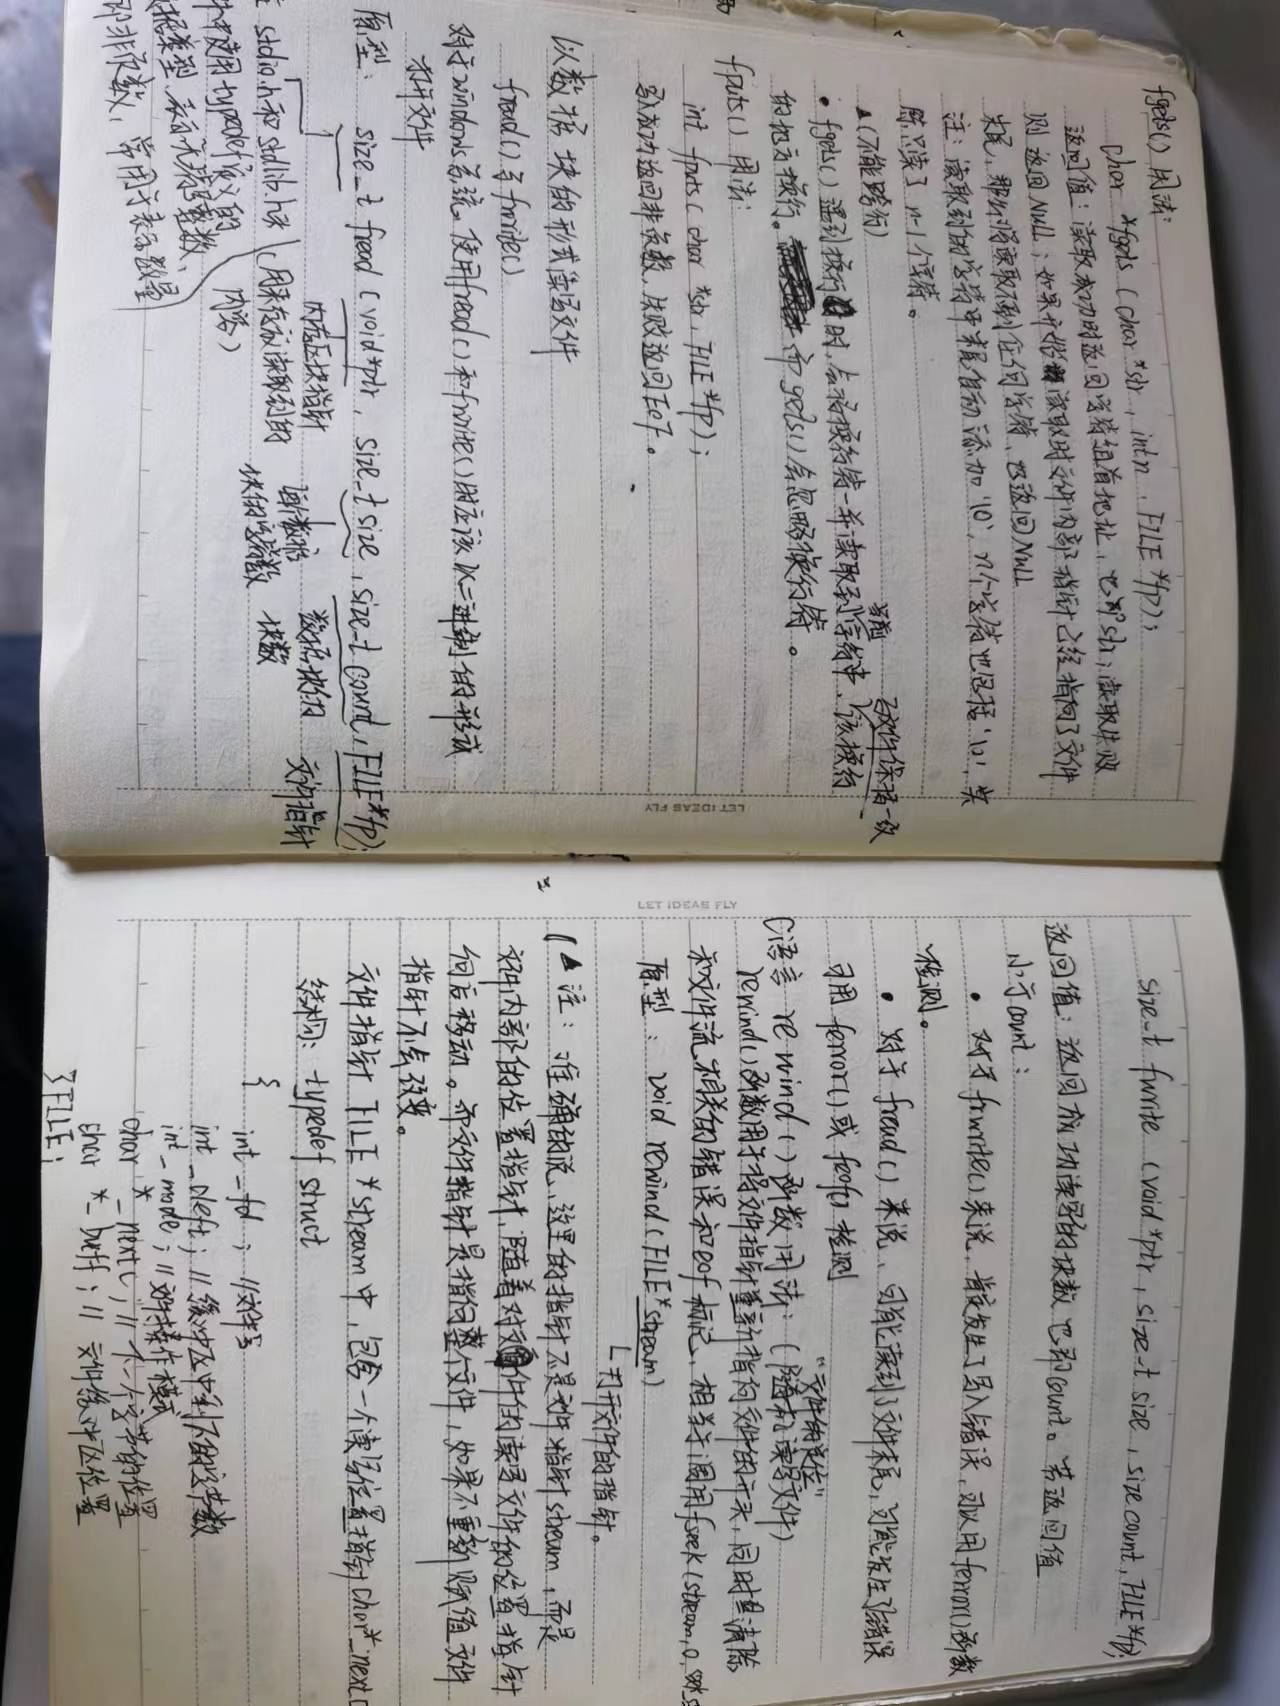 fgets() 用法：
char *fgets (char *str, int n, FILE *fp);
返回值：读取成功时返回字符组首地址，也即str；读取失败
则返回NULL；如果开始读取时文件内部指针已经指向了文件
末尾，那么将读取不到任何字符，也返回NULL
注：读取到的字符串末尾自动添加'\0'，n个字符也包括'\0'，实
际只读了 n-1 个字符。
▲(不能跨行)
与文件保持一致
• fgets()遇到换行时，会将换行符一并读取到当前字符串中，该换行
的地方换行。而gets()会忽略换行符。
fputs() 用法：
int fputs ( char *str, FILE *fp);
写入成功返回非负数，失败返回EOF。
以数据块的形式读写文件
fread() 与 fwrite()
对于windows系统，使用fread()和fwrite()时应该以二进制的形式
打开文件
原型： size_t fread ( void *ptr, size_t size, size_t count, FILE *fp);
内存区块指针
(用来存放读取到的
内容)
每个数据
块的字节数
数据块的
块数
文件指针
stdio.h 和 stdlib.h头
件中使用typedef定义的
数据类型，表示无符号整数，
即非负数，常用于表示数量
LET IDEAS FLY
LET IDEAS FLY
size_t fwrite (void *ptr, size_t size, size count, FILE *fp);
返回值：返回成功读写的块数，也即count。若返回值
小于count：
• 对于fwrite()来说，肯定发生了写入错误，可以用ferror()函数
检测。
• 对于fread()来说，可能读到了文件末尾，可能发生了错误
可用ferror()或feof()检测
"文件的定位"
C语言 rewind() 函数用法：(随机读写文件)
rewind()函数用于将文件指针重新指向文件的开头，同时清除
和文件流相关的错误和eof标记，相当于调用fseek(stream, 0,
原型：void rewind(FILE *stream)
打开文件的指针。
▲注：准确的说，这里的指针不是文件指针stream，而是
文件内部的位置指针，随着对文件的读写文件的位置指针
向后移动。而文件指针是指向整个文件，如果不重新赋值文件
指针不会改变。
文件指针 FILE *stream中，包含一个读写位置指针char *_next
结构：typedef struct
{
int _fd; //文件号
int _cleft; //缓冲区中剩下的字节数
int _mode; //文件操作模式
char * _next; //下一个字节的位置
char * _buff; //文件缓冲区位置
}FILE;